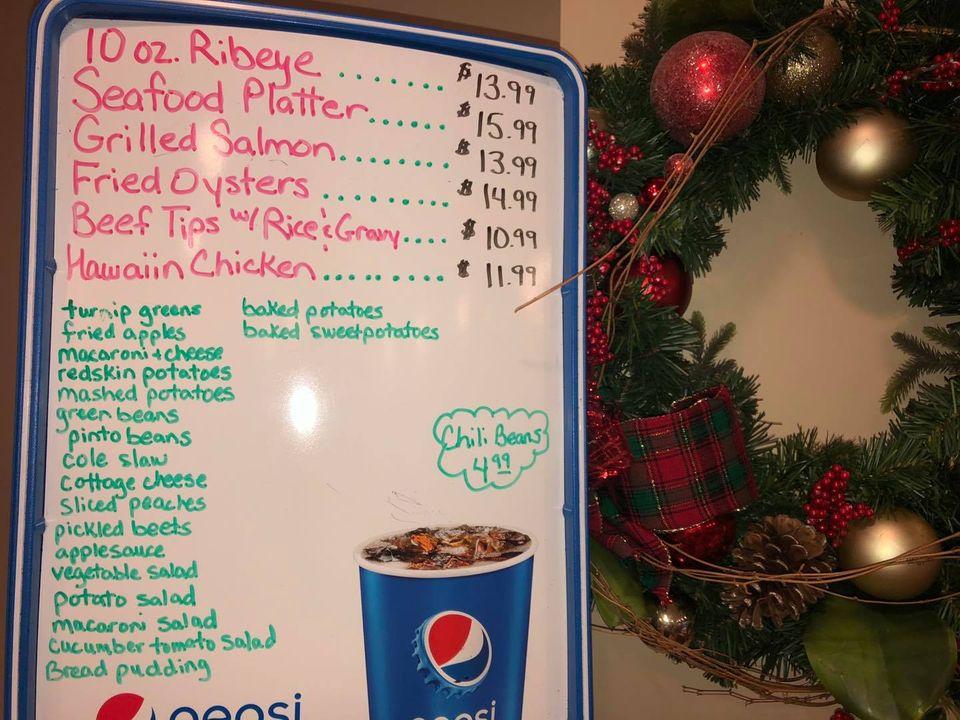 10 oz. Ribeye ...... $13.99
Seafood Platter...... $15.99
Grilled Salmon........ $13.99
Fried Oysters ........ $14.99
Beef Tips w/ Rice & Gravy.... $10.99
Hawaiin Chicken........ $11.99
turnip greens baked potatoes
fried apples baked sweetpotatoes
macaroni + cheese
redskin potatoes
mashed potatoes
green beans
pinto beans
cole slaw
cottage cheese
sliced peaches
pickled beets
applesauce
vegetable salad
potato salad
macaroni salad
cucumber tomato salad
Bread pudding
Chili Beans
4.99
pepsi
pepsi